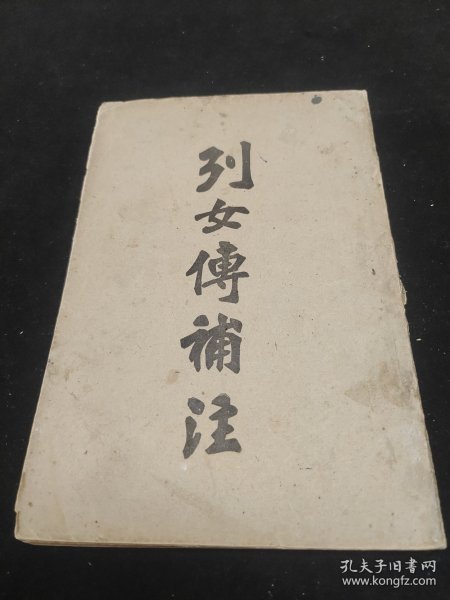 列女傳補注
孔夫子旧书网
www.kongfz.com